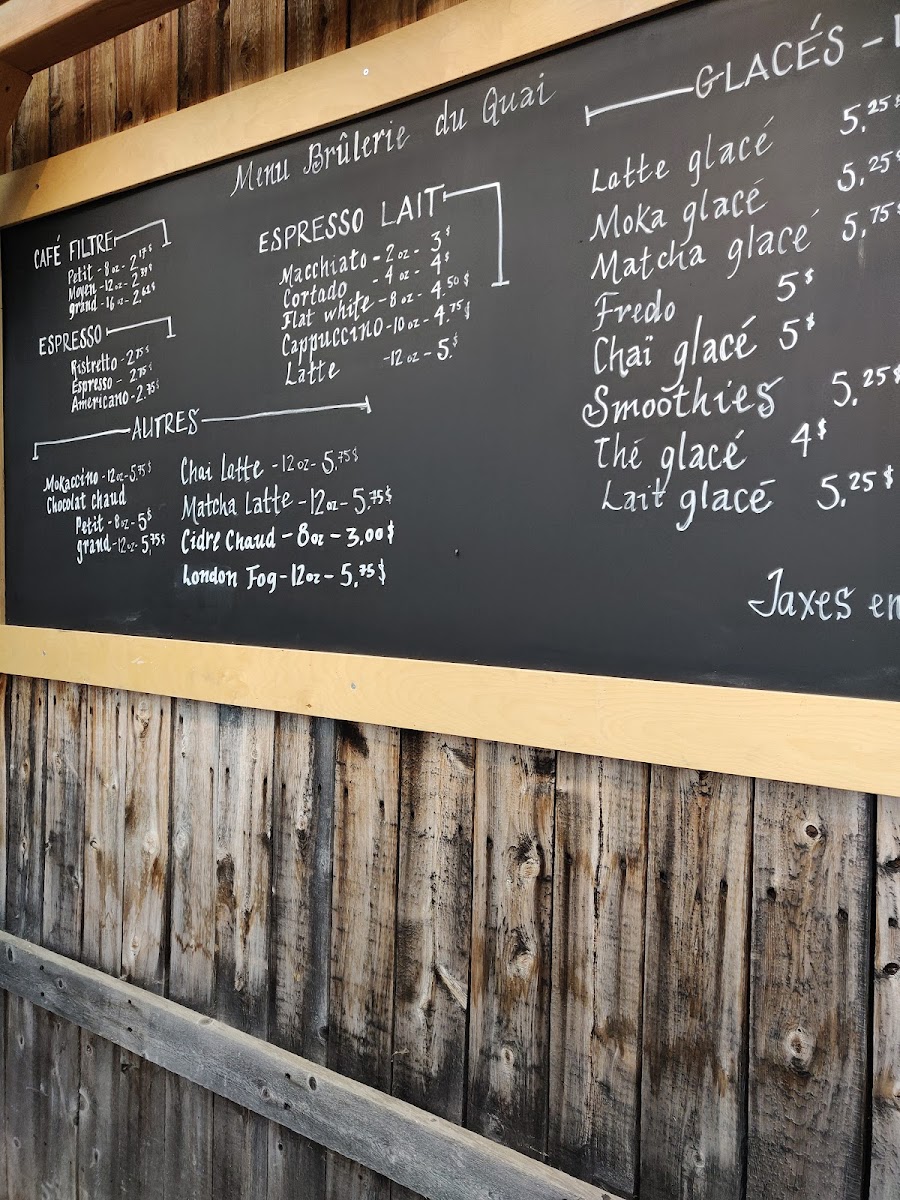 Menu Brûlerie du Quai
CAFÉ FILTRE
Petit - 8 oz - 2.17$
Moyen - 12 oz - 2.39$
grand - 16 oz - 2.62$
ESPRESSO
Ristretto - 2.75$
Espresso - 2.75$
Americano - 2.75$
ESPRESSO LAIT
Macchiato - 2 oz - 3$
Cortado - 4 oz - 4$
Flat white - 8 oz - 4.50$
Cappuccino - 10 oz - 4.75$
Latte - 12 oz - 5.$
AUTRES
Mokaccino - 12 oz - 5.75$
Chocolat chaud
Petit - 8 oz - 5$
grand - 12 oz - 5,75$
Chai Latte - 12 oz - 5,75$
Matcha Latte - 12 oz - 5.75$
Cidre Chaud - 8 oz - 3.00$
London Fog - 12 oz - 5,75$
GLACÉS -
Latte glacé 5,25$
Moka glacé 5,25$
Matcha glacé 5,75$
Fredo 5$
Chaï glacé 5$
Smoothies 5,25$
Thé glacé 4$
Lait glacé 5,25$
Taxes en